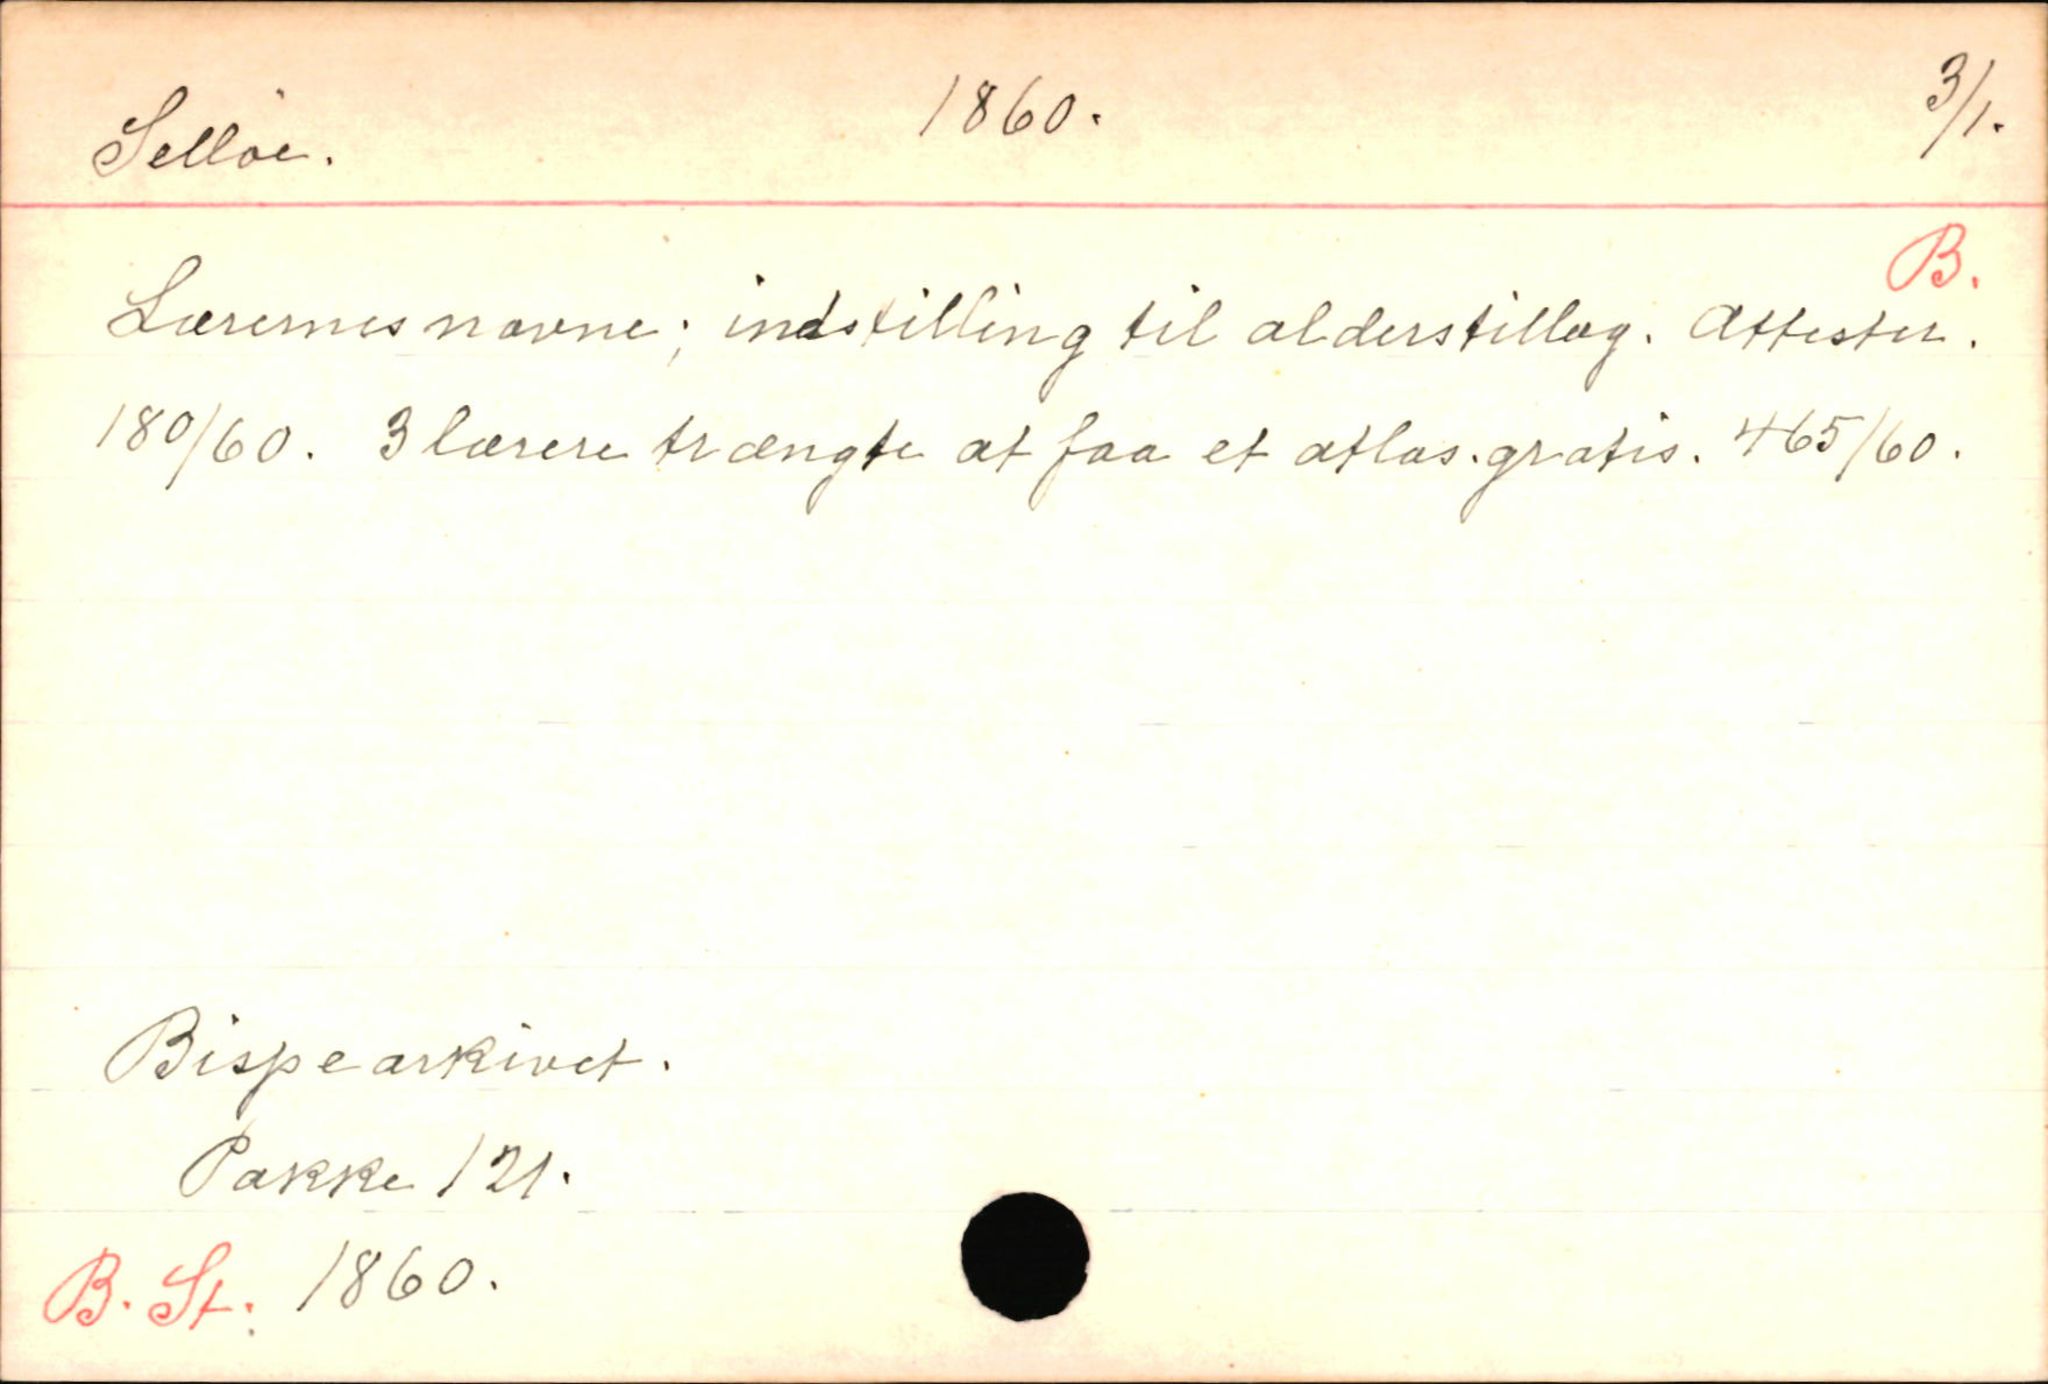 Selløe. 1860. 3/1.
B.
Lærernes navne; indstilling til alderstillæg. Attester.
180/60. 3 lærere trængte at faa et atlas gratis. 465/60.
Bispearkivet.
Pakke 121.
B. St. 1860.